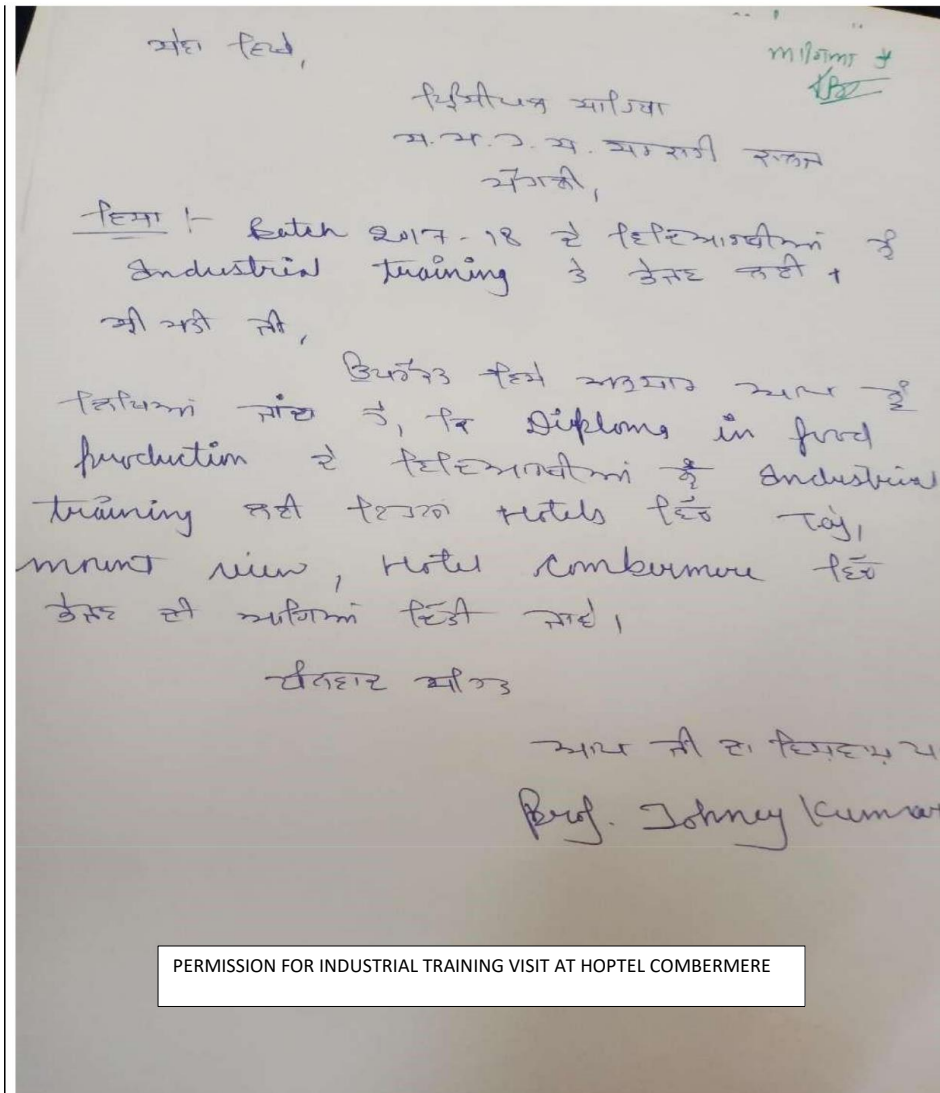 ਸੇਵਾ ਵਿਖੇ,
ਪ੍ਰਿੰਸੀਪਲ ਸਾਹਿਬਾ
ਸ.ਸ.ਰ.ਸ. ਸਰਕਾਰੀ ਕਾਲਜ
ਵਿਸ਼ਾ :- Batch 2017-18 ਦੇ ਵਿਦਿਆਰਥੀਆਂ ਨੂੰ
Industrial training ਤੇ ਭੇਜਣ ਲਈ ।
ਸ਼੍ਰੀ ਮਤੀ ਜੀ,
ਉਪਰੋਕਤ ਵਿਸ਼ੇ ਅਨੁਸਾਰ ਆਪ ਨੂੰ
ਲਿਖਿਆਂ ਜਾਂਦਾ ਹੈ, ਕਿ Diploma in food
production ਦੇ ਵਿਦਿਆਰਥੀਆਂ ਨੂੰ Industrial
training ਲਈ ਇਹਨਾਂ Hotels ਵਿੱਚ Taj,
mount view, Hotel Combermere ਵਿੱਚ
ਭੇਜਣ ਦੀ ਆਗਿਆਂ ਦਿੱਤੀ ਜਾਵੇ ।
ਧੰਨਵਾਦ ਸਹਿਤ
ਆਪ ਜੀ ਦਾ ਵਿਸ਼ਵਾਸ਼ ਪ
Prof. Johney Kumar
PERMISSION FOR INDUSTRIAL TRAINING VISIT AT HOPTEL COMBERMERE